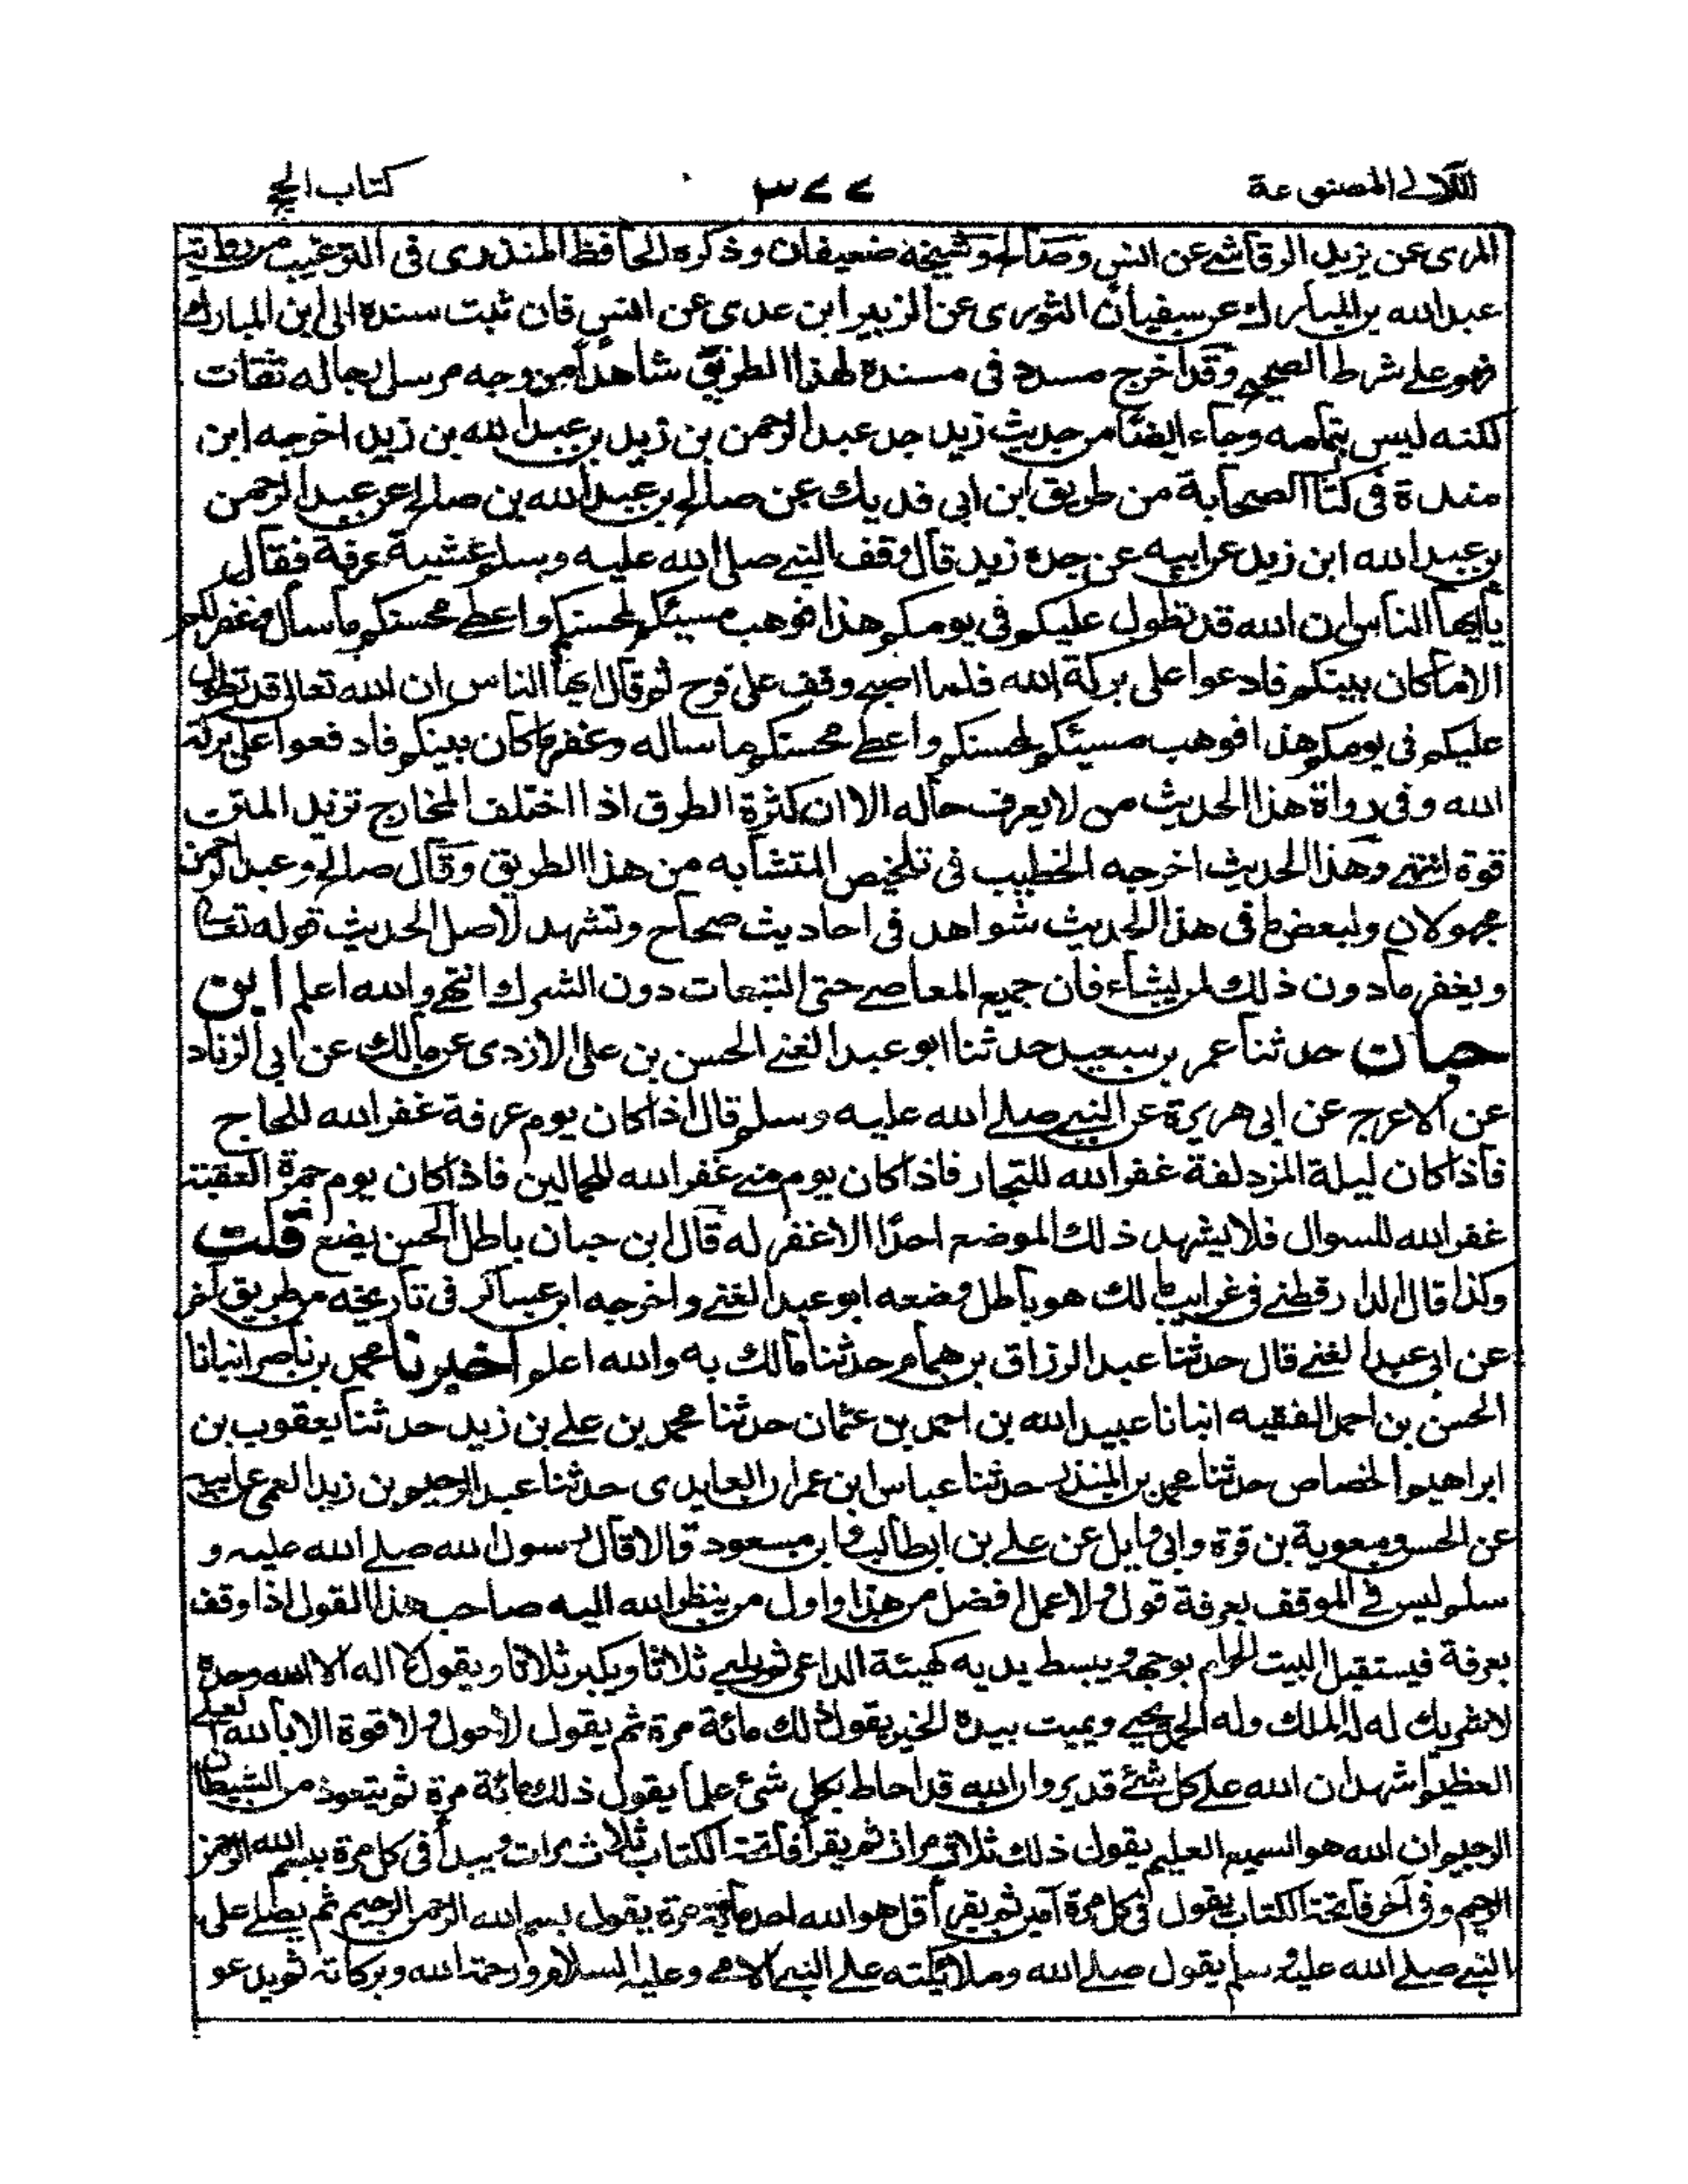 اللآلى المصنوعة
٣٧٧
كتاب الحج
المرى عن يزيد الرقاشى عن انس وصالح وشيخه ضعيفان وذكره الحافظ المنذرى فى الترغيب من رواية
عبدالله بن المبارك عن سفيان الثورى عن الزبير ابن عدى عن انس فان ثبت سنده الى ابن المبارك
فهو على شرط الصحيح وقد اخرج مسدد فى مسنده لهذا الطريق شاهدا من وجه مرسل رجاله ثقات
لكنه ليس بتمامه وجاء ايضا من حديث زيد جد عبد الرحمن بن زيد بن عبد الله بن زيد اخرجه ابن
مندة فى كتاب الصحابة من طريق ابن ابى فديك عن صالح بن عبد الله بن صالح عن عبد الرحمن
بن عبد الله ابن زيد عن ابيه عن جده زيد قال وقف النبى صلى الله عليه وسلم عشية عرفة فقال
يا ايها الناس ان الله قد تطول عليكم فى يومكم هذا فوهب مسيئكم لمحسنكم واعطى محسنكم ما سأل وغفر لكم
الا ما كان بينكم فادعوا على بركة الله فلما اصبح وقف على قزح ثم قال ايها الناس ان الله تعالى قد تطول
عليكم فى يومكم هذا فوهب مسيئكم لمحسنكم واعطى محسنكم ما ساله وغفر ما كان بينكم فادفعوا على بركة
الله وفى رواة هذا الحديث من لا يعرف حاله الا ان كثرة الطرق اذا اختلف المخارج تزيد المتن
قوة انتهى وهذا الحديث اخرجه الخطيب فى تلخيص المتشابه من هذا الطريق وقال صالح وعبد الرحمن
مجهولان ولبعض ما فى هذا الحديث شواهد فى احاديث صحاح وتشهد لاصل الحديث قوله تعالى
ويغفر ما دون ذلك لمن يشاء فان جميع المعاصى حتى التبعات دون الشرك انتهى والله اعلم ابن
حبان حدثنا عمر بن سعيد حدثنا ابو عبد الغنى الحسن بن على الازدى عن مالك عن ابى الزناد
عن الاعرج عن ابى هريرة عن النبى صلى الله عليه وسلم قال اذا كان يوم عرفة غفر الله للحاج
فاذا كان ليلة المزدلفة غفر الله للتجار فاذا كان يوم منى غفر الله للجمالين فاذا كان يوم جمرة العقبة
غفر الله للسوال فلا يشهد ذلك الموضع احدا الا غفر له قال ابن حبان باطل الحسن يضع قلت
وكذا قال الدارقطنى فى غرايب مالك هو باطل وضعه ابو عبد الغنى واخرجه ابن عساكر فى تاريخه من طريق آخر
عن ابى عبد الغنى قال حدثنا عبد الرزاق بن همام حدثنا مالك به والله اعلم اخبرنا محمد بن ناصر انبانا
الحسن بن احمد الفقيه انبانا عبيد الله بن احمد بن عثمان حدثنا محمد بن على بن زيد حدثنا يعقوب بن
ابراهيم الخصاص حدثنا محمد بن المنذر حدثنا عباس ابن عمران العابدى حدثنا عبد الرحيم بن زيد العمى عن ابيه
عن الحسن ومعوية بن قرة وابى وايل عن على بن ابى طالب وابن مسعود قالا قال رسول الله صلى الله عليه و
سلم ليس فى الموقف بعرفة قول ولا عمل افضل من هذا واول من ينظر الله اليه صاحب هذا القول اذا وقف
بعرفة فيستقبل البيت الحرام بوجهه ويبسط يديه كهيئة الداعى ثم يلبى ثلاثا ويكبر ثلاثا ويقول لا اله الا الله وحده
لا شريك له له الملك وله الحمد يحيى ويميت بيده الخير يقول ذلك مائة مرة ثم يقول لا حول ولا قوة الا بالله العلى
العظيم اشهد ان الله على كل شئ قدير وان الله قد احاط بكل شئ علما يقول ذلك مائة مرة ثم يتعوذ من الشيطان
الرجيم ان الله هو السميع العليم يقول ذلك ثلاث مرات ثم يقرأ فاتحة الكتاب ثلاث مرات ويبدأ فى كل مرة ببسم الله الرحمن
الرحيم وفى آخر فاتحة الكتاب يقول فى كل مرة آمين ثم يقرأ قل هو الله احد مائة مرة يقول بسم الله الرحمن الرحيم ثم يصلى على
النبى صلى الله عليه وسلم يقول صلى الله وملائكته على النبى الامى وعليه السلام ورحمة الله وبركاته ثم يدعو